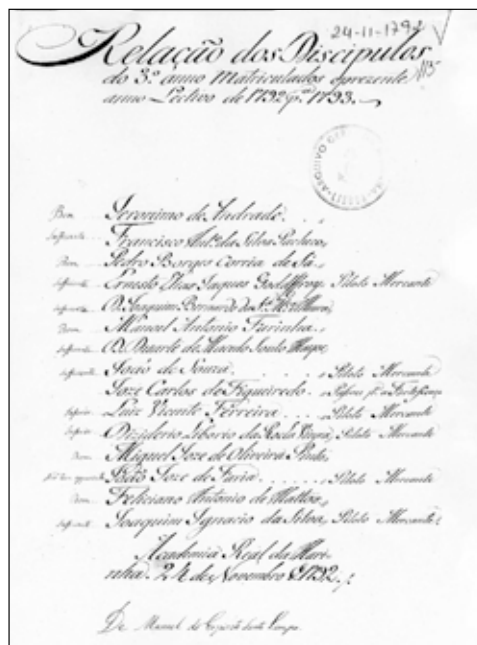 24-11-1792
Relação dos Discipulos
do 3.º anno Matriculados o prezente
anno Lectivo de 1792 p.ª 1793.
ARQUIVO
Bom Jeronimo de Andrade
Sufficiente Francisco Ant.º da Silva Pacheco
Bom Pedro Borges Correa de Sá
Sufficiente Ernesto Elias Jaques Godeffroy Piloto Mercante
Sufficiente D. Joaquim Bernardo de
Bom Manoel António Farinha
Sufficiente D. Duarte de Macedo Souto Mayor
Sufficiente João de Souza Piloto Mercante
Joze Carlos de Figueiredo
Inferior Luiz Vicente Ferreira Piloto Mercante
Inferior Liborio da Roda Piloto Mercante
Bom Miguel Joze de Oliveira Pinto
João Joze de Faria Piloto Mercante
Bom Feliciano António de Mattos
Sufficiente Joaquim Ignacio da Silva, Piloto Mercante
Academia Real da Mari-
nha 24 de Novembro de 1792
Manuel do Espirito Santo Limpo